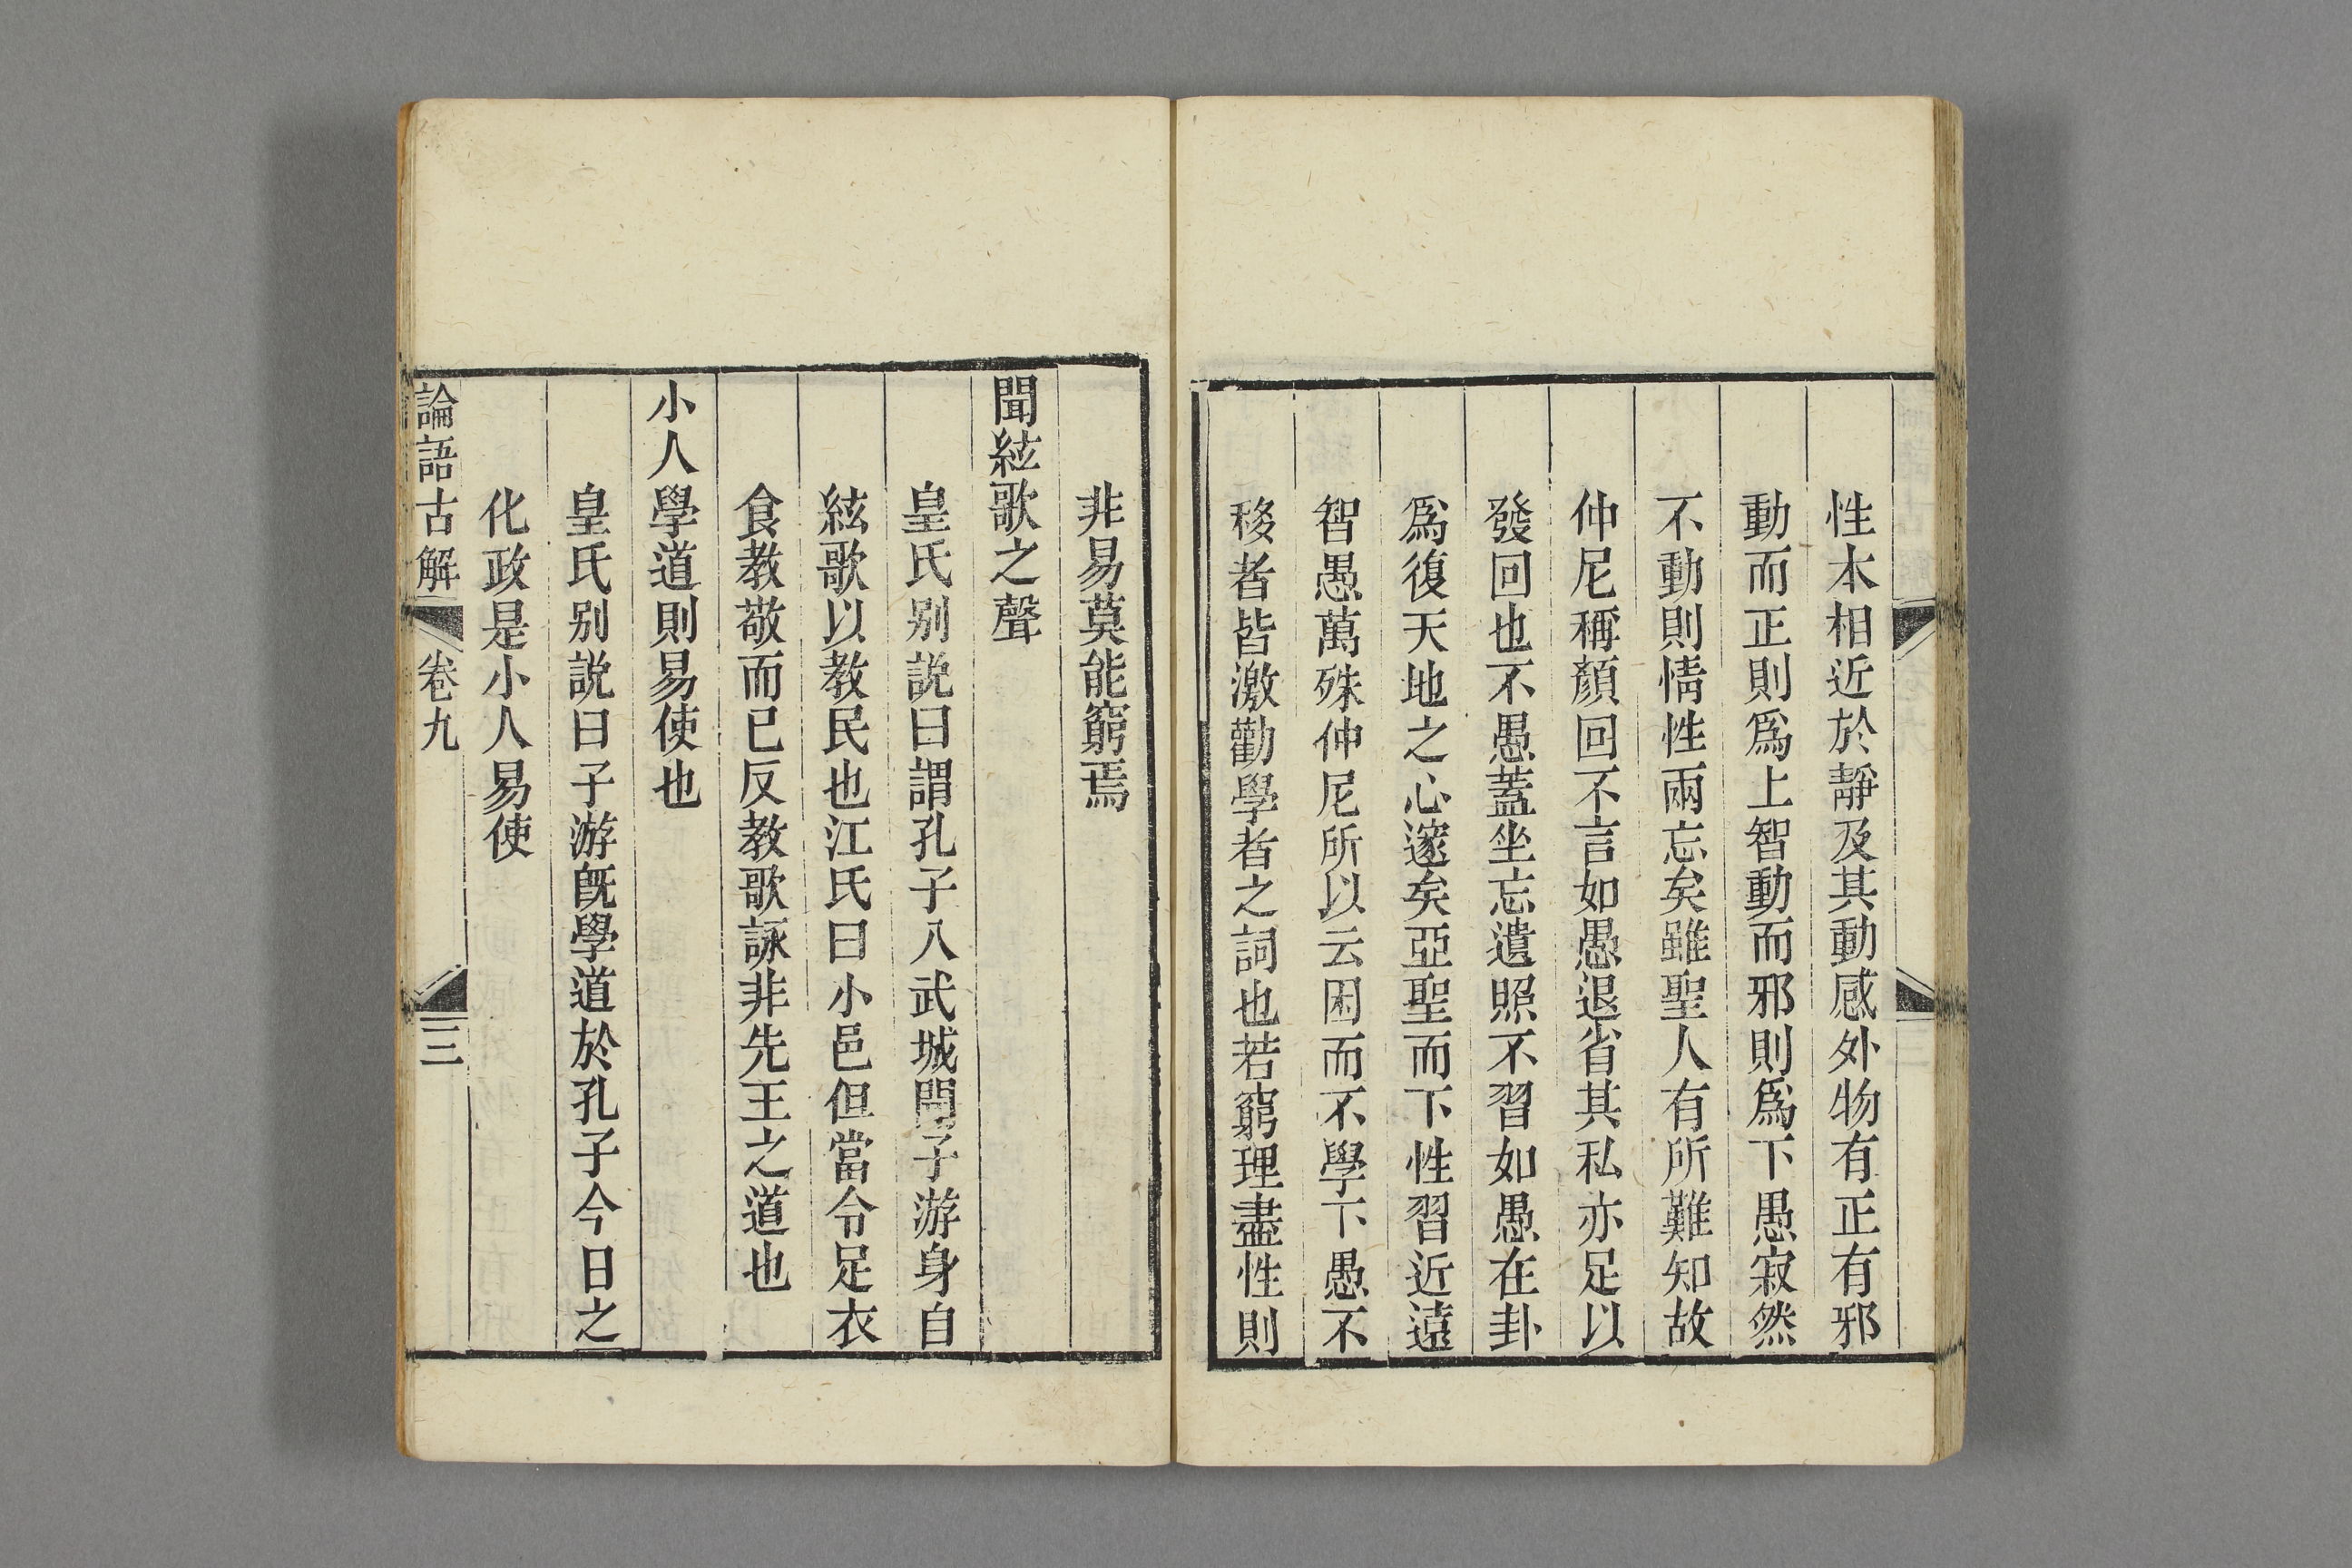 性本相近於靜及其動感外物有正有邪
動而正則爲上智動而邪則爲下愚寂然
不動則情性兩忘矣雖聖人有所難知故
仲尼稱顏回不言如愚退省其私亦足以
發回也不愚蓋坐忘遺照不習如愚在卦
爲復天地之心邃矣亞聖而下性習近遠
智愚萬殊仲尼所以云困而不學下愚不
移者皆激勸學者之詞也若窮理盡性則
非易莫能窮焉
聞絃歌之聲
皇氏别説曰謂孔子入武城聞子游身自
絃歌以教民也江氏曰小邑但當令足衣
食教敬而已反教歌詠非先王之道也
小人學道則易使也
皇氏别説曰子游旣學道於孔子今日之
化政是小人易使
論語古解 卷九 三